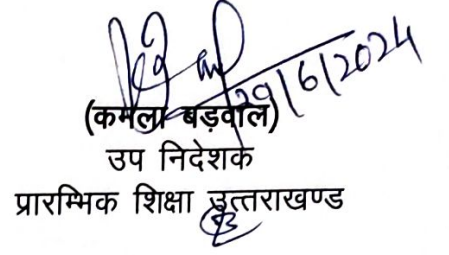 29/6/2024
(कमला बड़वाल)
उप निदेशक
प्रारम्भिक शिक्षा उत्तराखण्ड